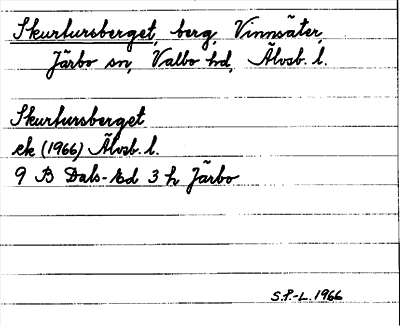 Skurfursberget, berg, Vinnsäter,
Järbo sn, Valbo hd, Älvsb. l.
Skurfursberget
ek (1966) Älvsb. l.
9 B Dals-Ed 3 h Järbo
S.P.-L. 1966